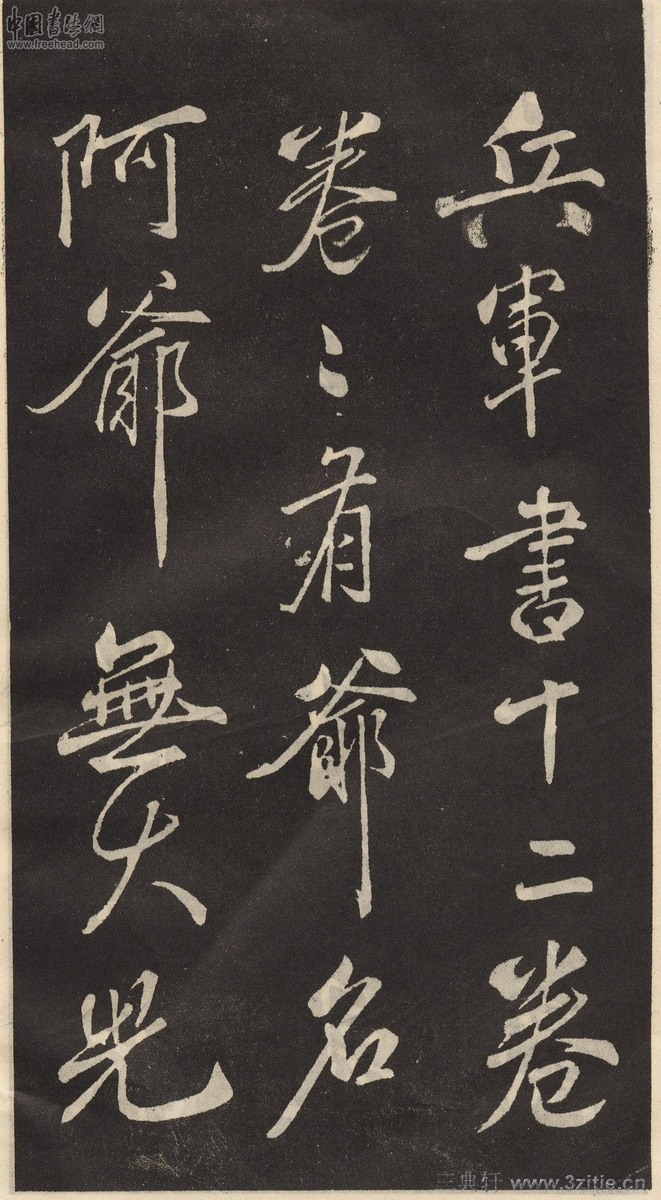 兵軍書十二卷
卷〻有爺名
阿爺無大兒
中国书法網
www.freehead.com
三典轩 www.3zitie.cn